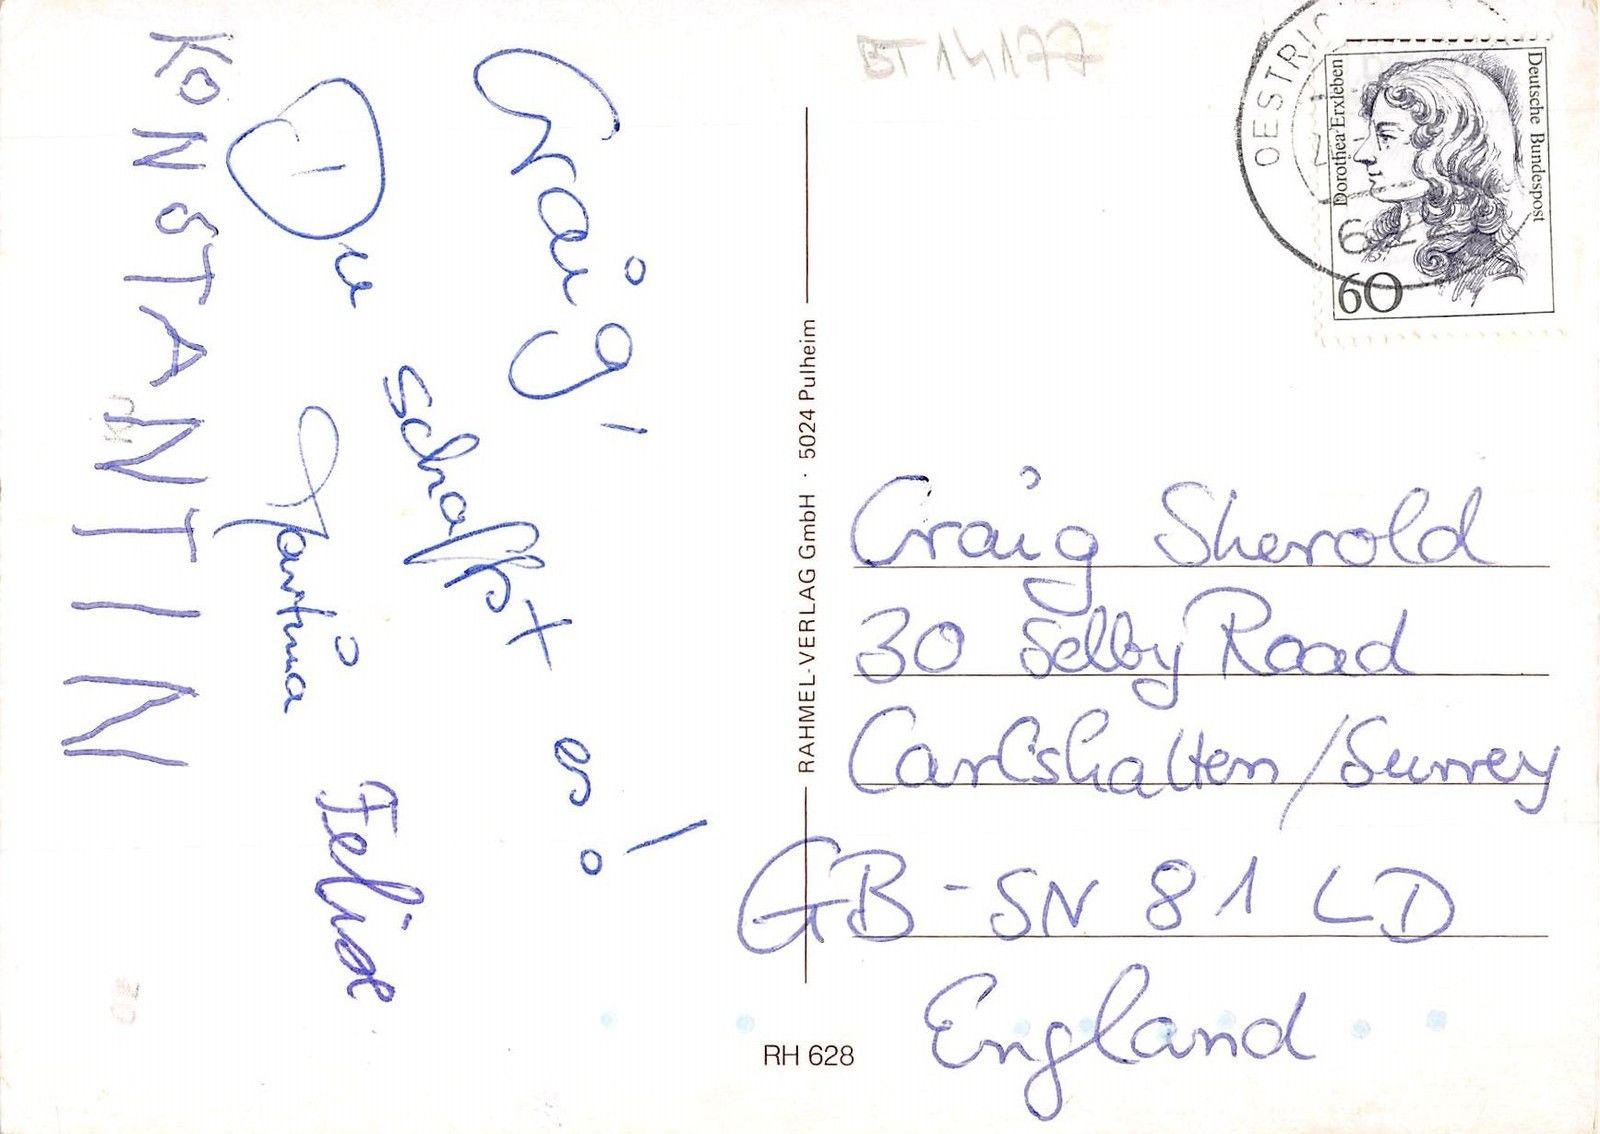 Craig,
Du
schaffst es!
Martina
Felix
KONSTANTIN
BT14177
RAHMEL-VERLAG GmbH · 5024 Pulheim
RH 628
OESTRIC
Deutsche Bundespost
Dorothea Erxleben
60
62
Craig Sherold
30 Selby Road
Carlshalten/Surrey
GB-SN 81 LD
England